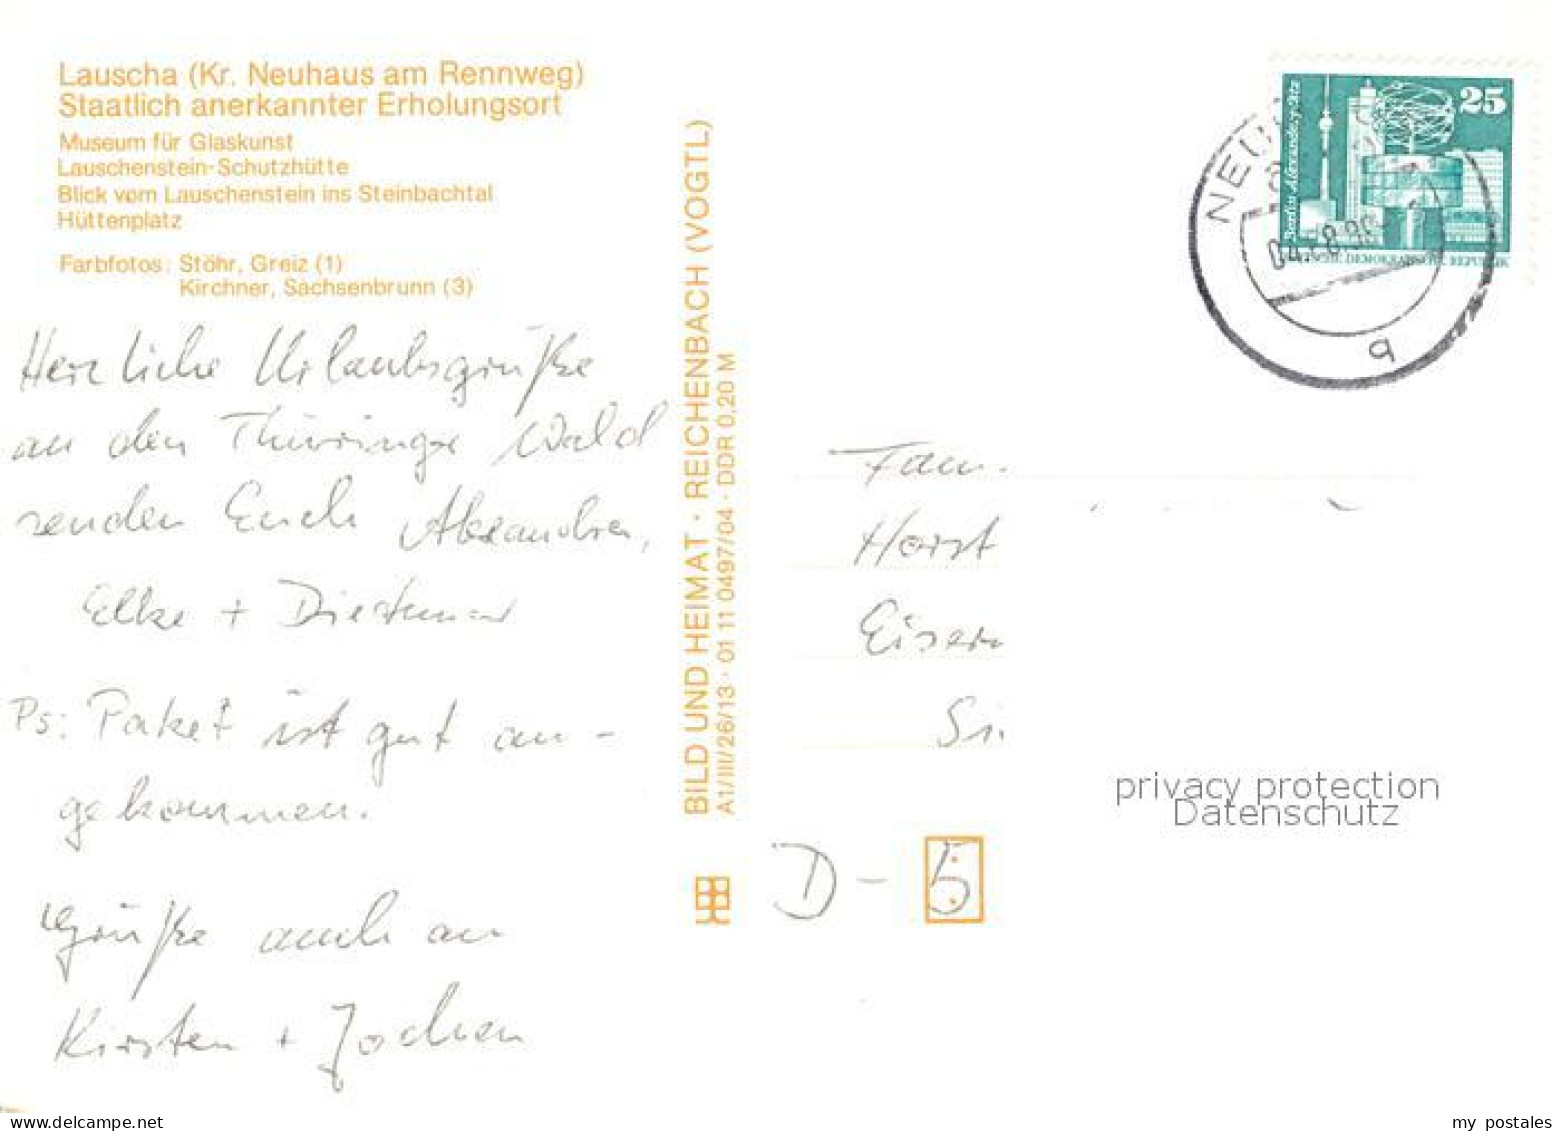 Lauscha (Kr. Neuhaus am Rennweg)
Staatlich anerkannter Erholungsort
Museum für Glaskunst
Lauschenstein-Schutzhütte
Blick vom Lauschenstein ins Steinbachtal
Hüttenplatz
Farbfotos: Stöhr, Greiz (1)
Kirchner, Sachsenbrunn (3)
Herzliche Urlaubsgrüße
au den Thüringe Wald
senden Euch Alexandra,
Elke + Dietmar
Ps: Paket ist gut an-
gekommen.
Grüße auch an
Kirsten + Jochen
BILD UND HEIMAT · REICHENBACH (VOGTL)
A1/III/26/13 · 01 11 0497/04 · DDR 0,20 M
25
Berlin, Alexanderplatz
DEUTSCHE DEMOKRATISCHE REPUBLIK
NEU
q
Fam.
Horst
Eisern
Si
privacy protection
Datenschutz
D - 5
my postales